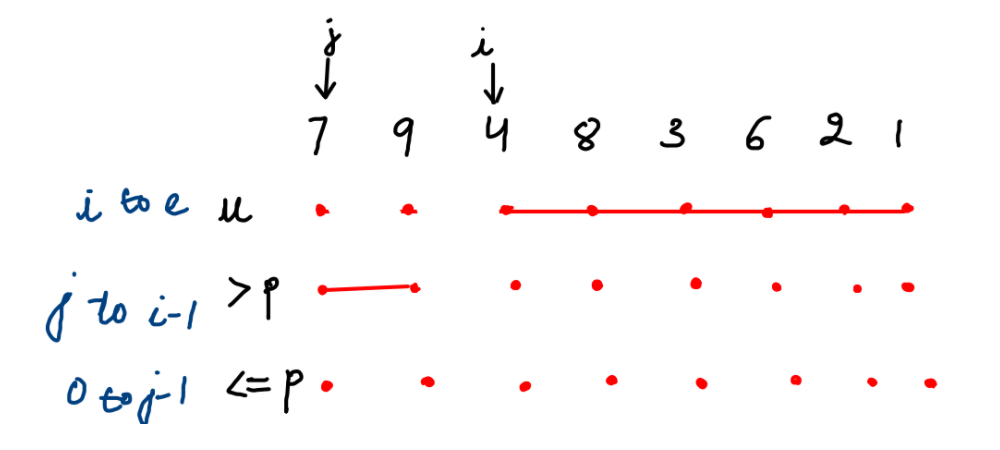 j i
7 9 4 8 3 6 2 1
i to e u
j to i-1 >p
0 to j-1 <=p